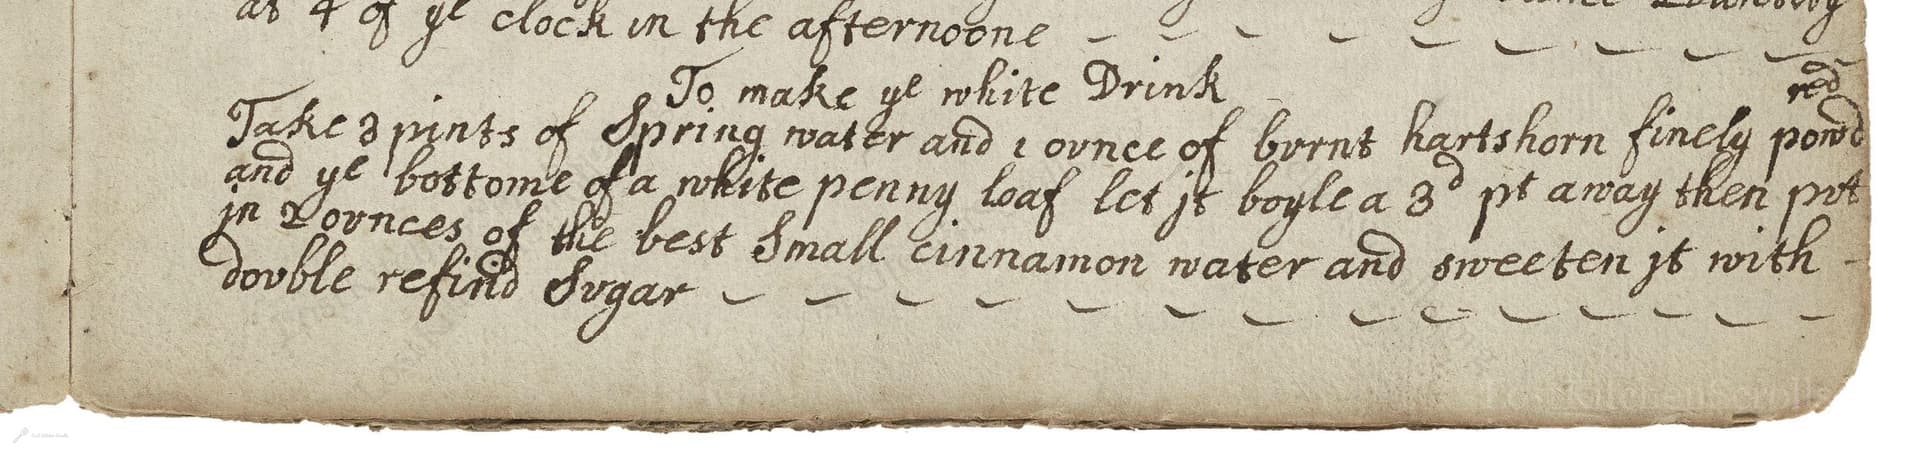 at 4 of ye clock in the afternoone
To make ye white Drink
Take 3 pints of Spring water and 1 ovnce of bvrnt hartshorn finely powd red
and ye bottome of a white penny loaf let jt boyle a 3d pt away then pvt
jn 2 ovnces of the best Small cinnamon water and sweeten jt with
dovble refind Svgar